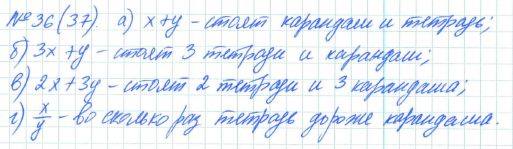 №36(37) а) x+y - стоят карандаш и тетрадь;
б) 3x+y - стоят 3 тетради и карандаш;
в) 2x+3y - стоят 2 тетради и 3 карандаша;
г) x/y - во сколько раз тетрадь дороже карандаша.